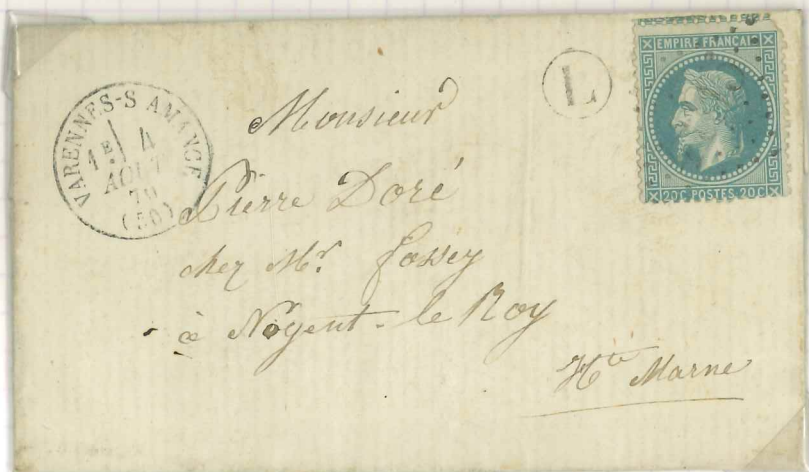 VARENNES-S AMANCE
1E 4
AOUT
70
(50)
L
EMPIRE FRANÇAIS
20C POSTES 20C
Monsieur
Pierre Doré
chez Mr. Fossey
à Nogent-le Roy
Hte Marne